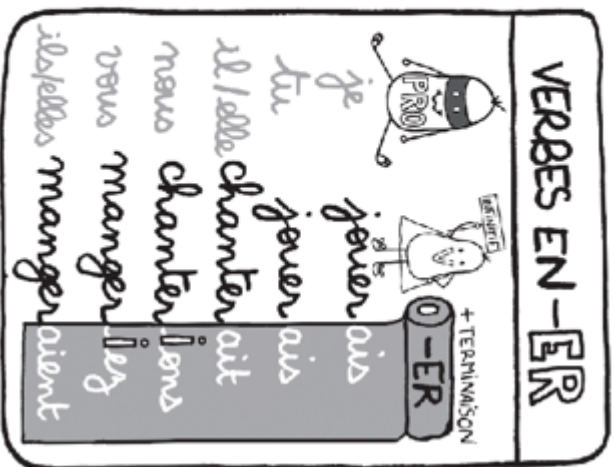 VERBES EN -ER
PRO
INFINITIF
+ TERMINAISON
-ER
je jouerais
tu jouerais
il/elle chanterait
nous chanterions
vous mangeriez
ils/elles mangeraient